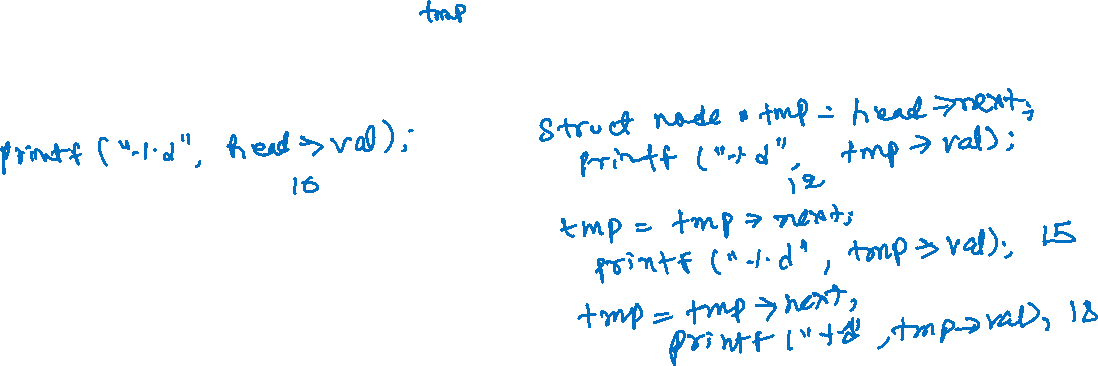 tmp
printf ("%d", head->val);
10
struct node * tmp = head->next;
printf ("%d", tmp->val);
12
tmp = tmp->next;
printf ("%d", tmp->val); 15
tmp = tmp->next;
printf ("%d", tmp->val), 18